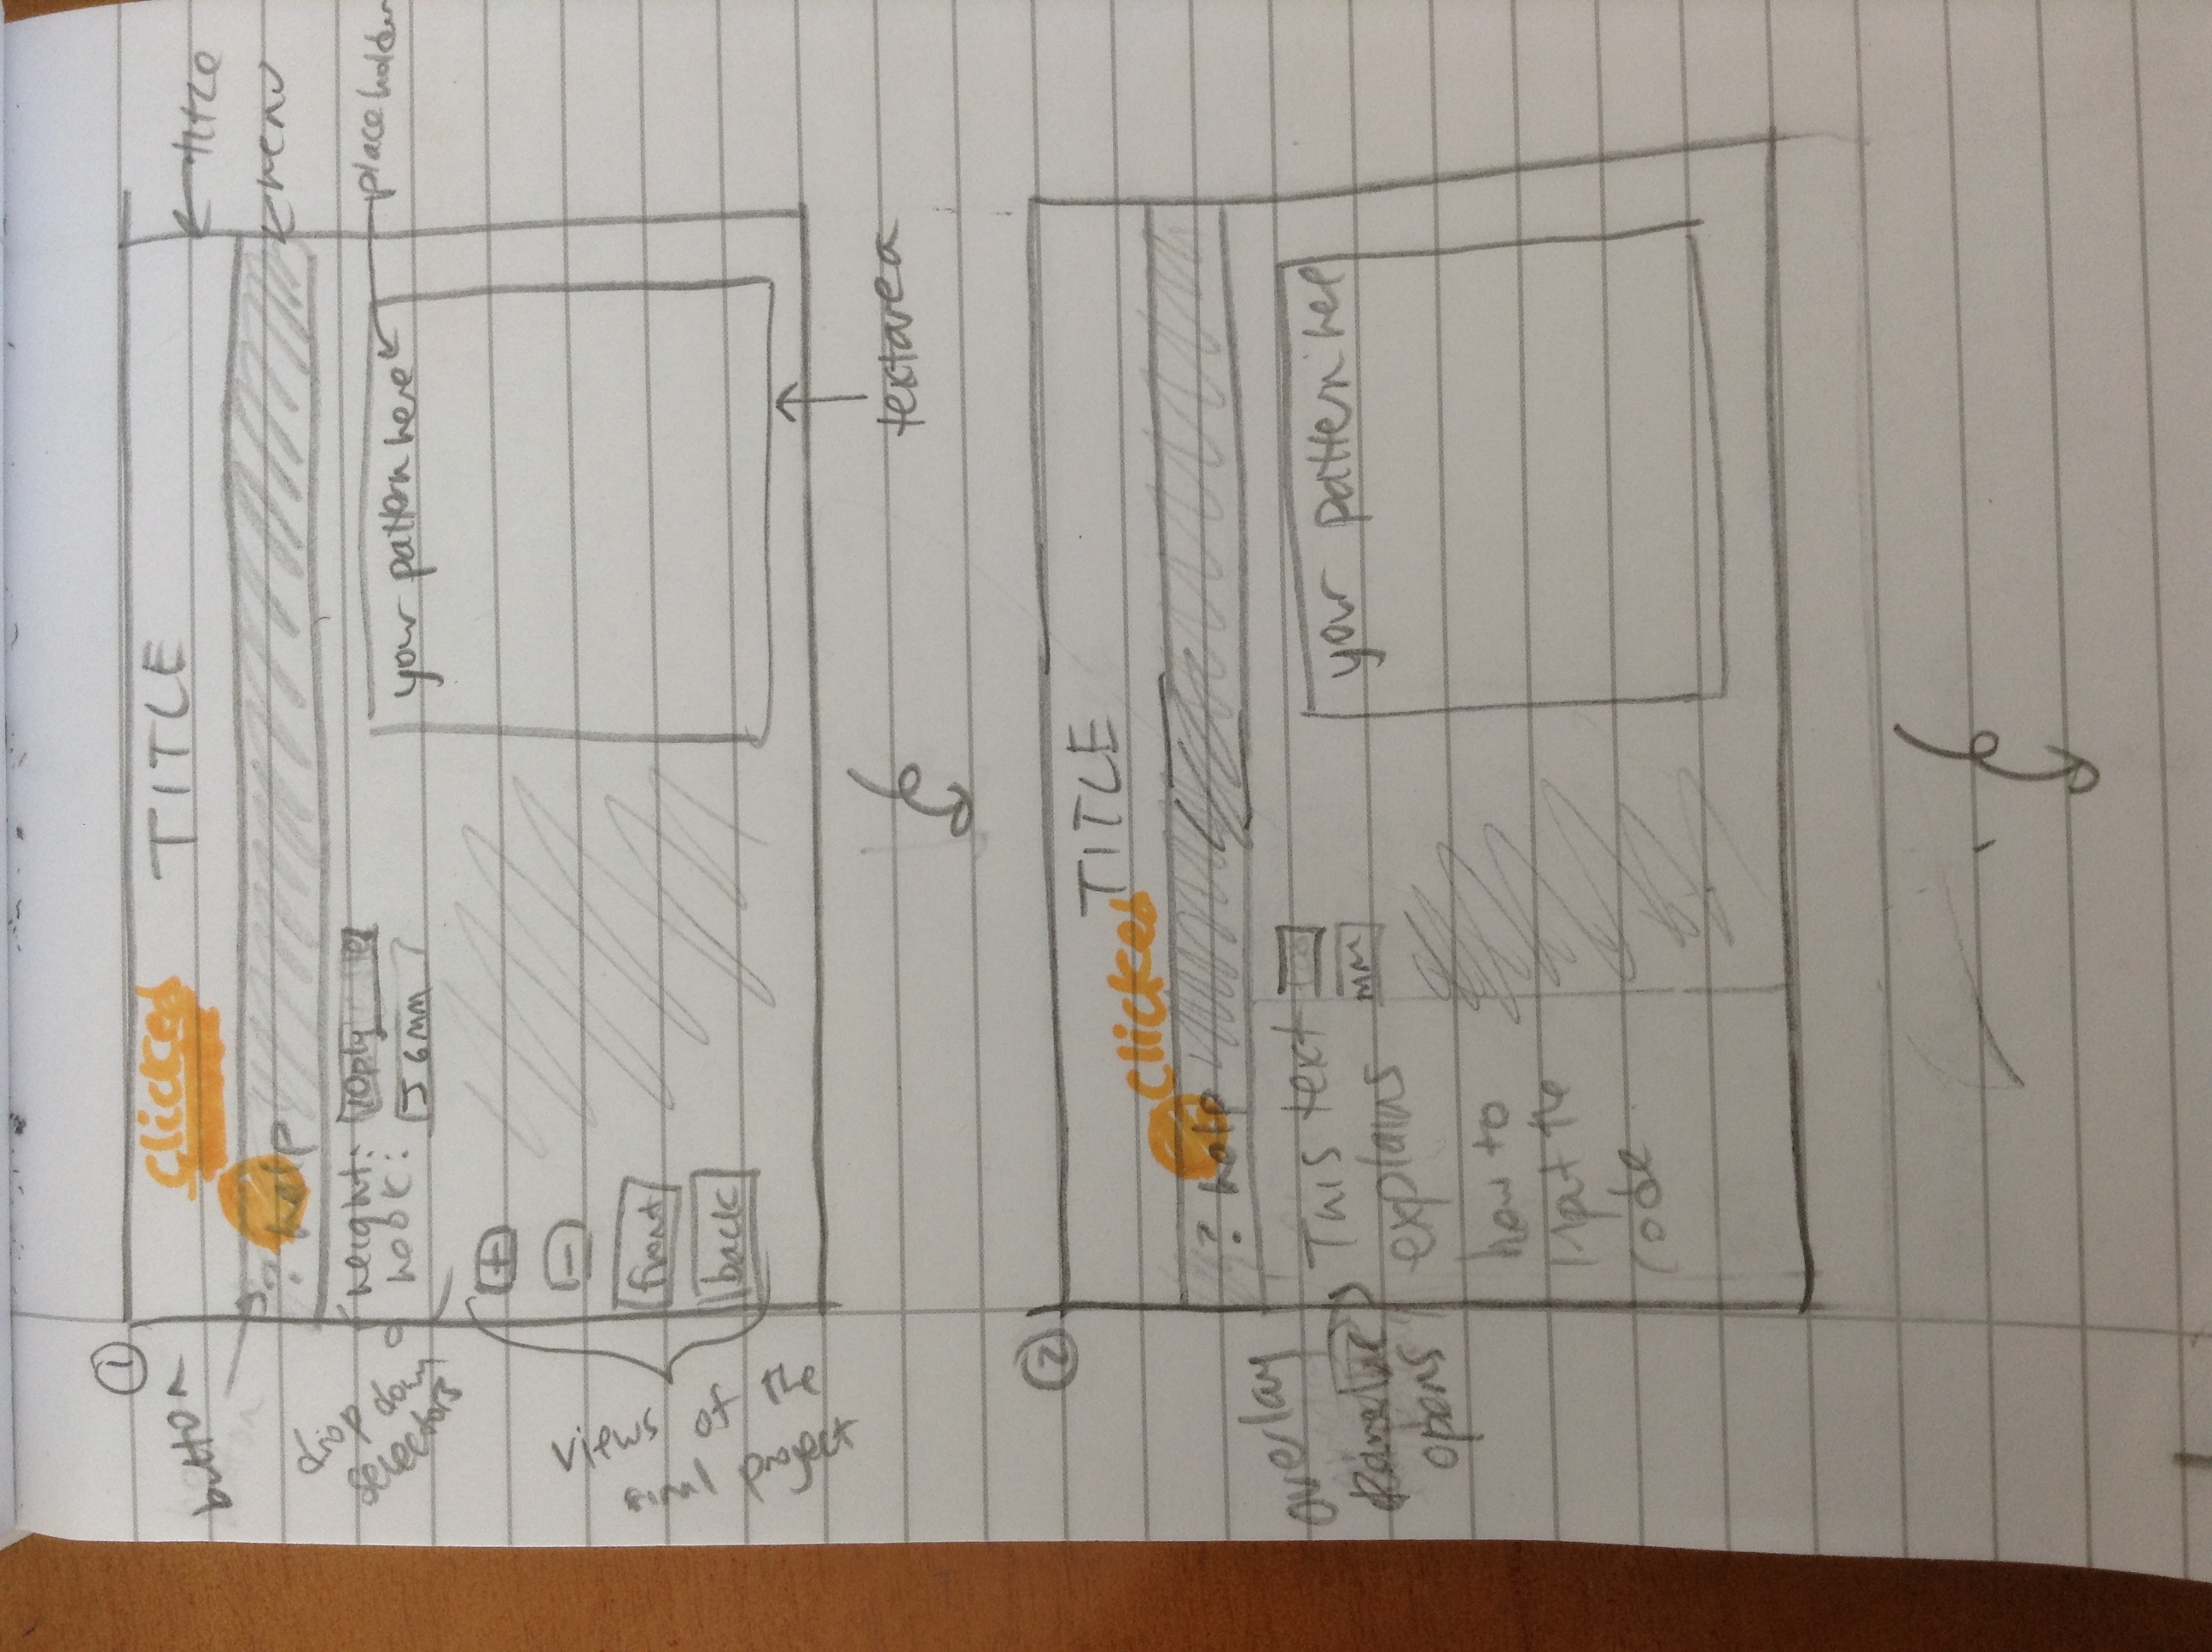 1
Clicked TITLE
button
title
? help
menu
drop down
selectors
weight: 10ply
hook: J 6mm
your pattern here
place holder
+
-
front
back
views of the
final project
textarea
2
TITLE
Clicked
? help
overlay
opens
This text
explains
how to
input the
code
mm
your pattern here